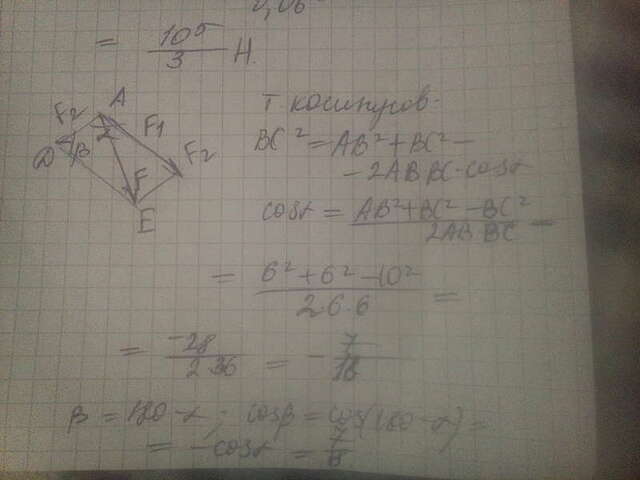 0,06
= 10⁵/3 Н.
A
F2 F1
α
D β F F2
E
Т. косинусов:
BC² = AB² + BC² −
− 2AB BC·cosα
cosα = AB² + BC² − BC² / 2AB·BC =
= 6² + 6² − 10² / 2·6·6 =
= −28 / 2·36 = − 7/18
β = 180 − α; cosβ = cos(180 − α) =
= −cosα = 7/8